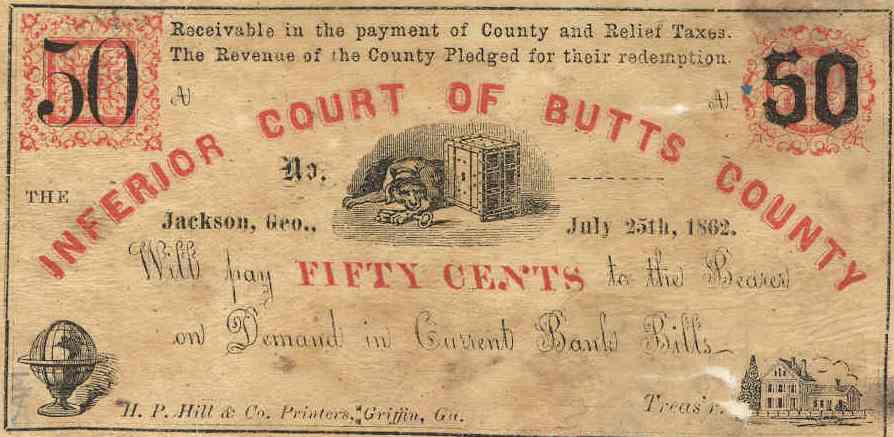 Receivable in the payment of County and Relief Taxes.
The Revenue of the County Pledged for their redemption.
50
A
A
50
INFERIOR COURT OF BUTTS COUNTY
No.
THE
Jackson, Geo., July 25th, 1862.
Will pay FIFTY CENTS to the Bearer
on Demand in Current Bank Bills
H. P. Hill & Co. Printers, Griffin, Ga.
Treas'r.